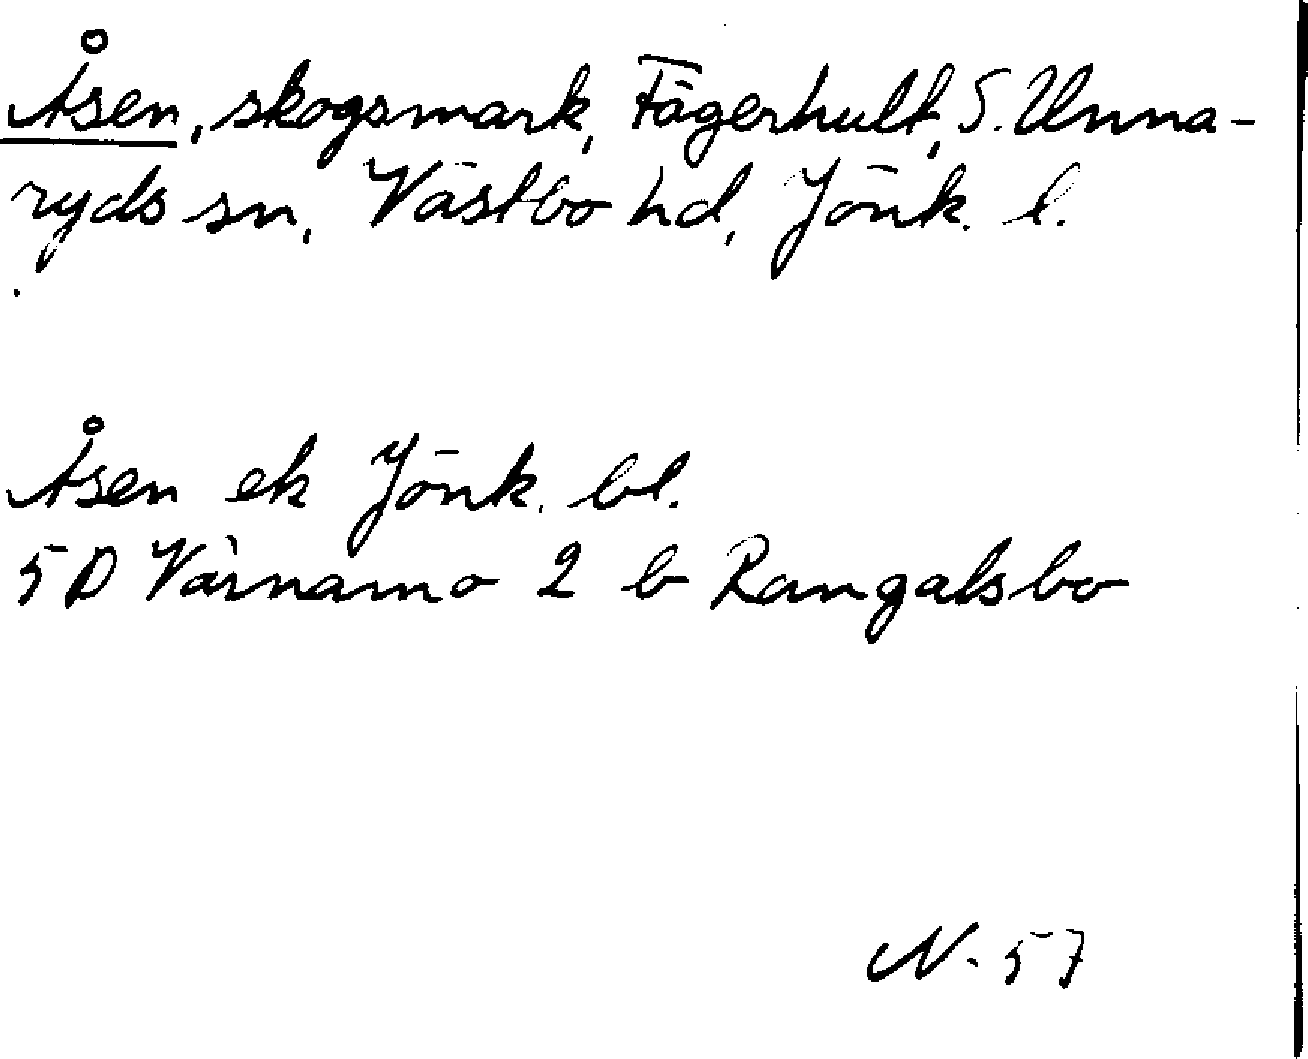 Åsen, skogsmark, Fägerhult, S. Unna-
ryds sn, Västbo hd, Jönk. l.
Åsen ek Jönk. bl.
5D Värnamo 2 b Rangalsbo
N. 57